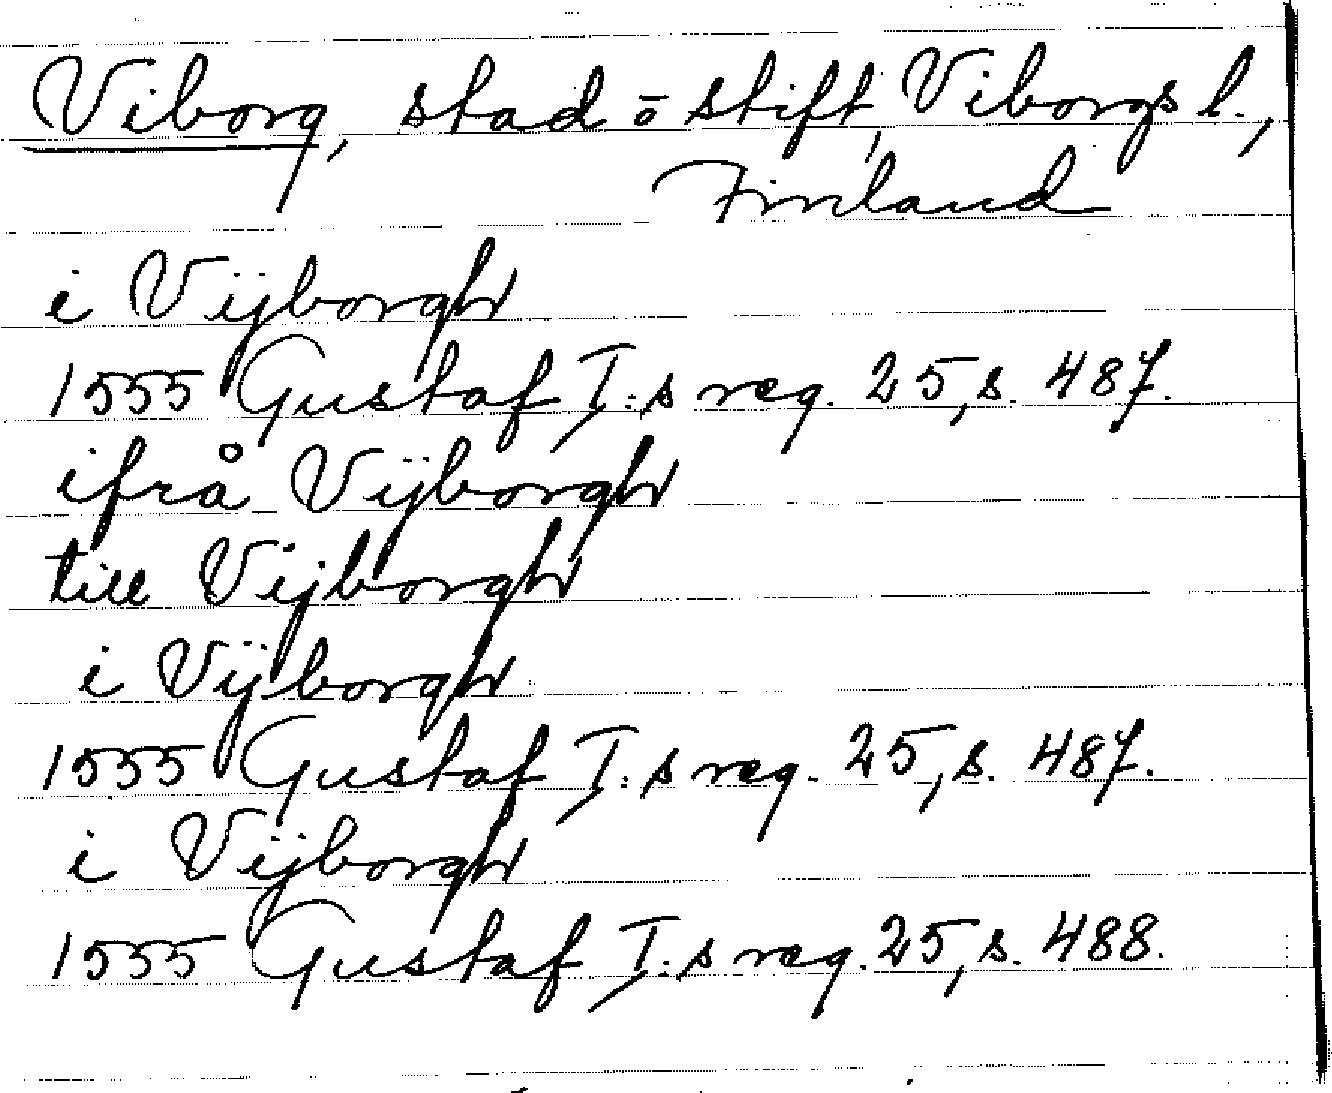 Viborg, stad o stift, Viborgs l.,
Finland
i Vijborgh
1555 Gustaf I:s reg. 25, s. 487.
ifrå Vijborgh
till Vijborgh
i Vijborgh
1555 Gustaf I:s reg. 25, s. 487.
i Vijborgh
1555 Gustaf I:s reg. 25, s. 488.